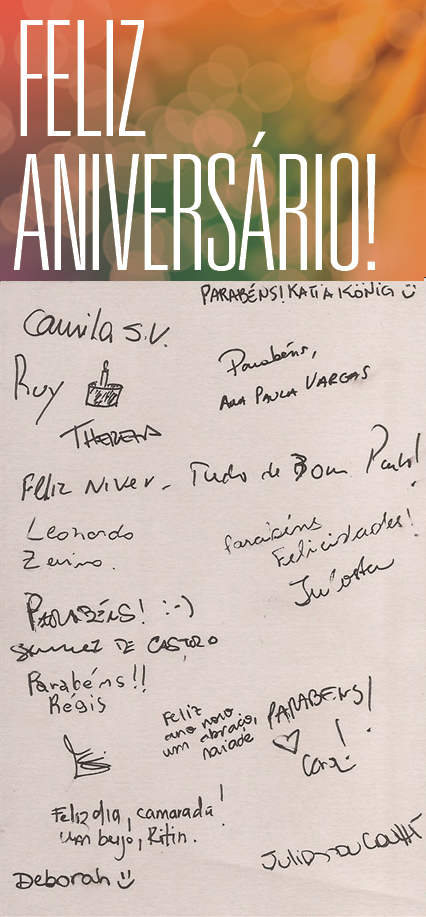 FELIZ
ANIVERSÁRIO!
PARABÉNS! KATIA KÖNIG
Camila S.V.
Parabéns,
ANA PAULA VARGAS
Ruy
THEREZA
FELIZ NIVER - Tudo de Bom Paulo!
Leonardo
Zenino.
Parabéns
Felicidades!
Ju Costa
PARABÉNS! :-)
DE CASTRO
Parabéns!!
Régis
Feliz
ano novo
um abraço,
naiade
PARABENS!
Feliz dia, camarada!
um beijo, Ritin.
Deborah